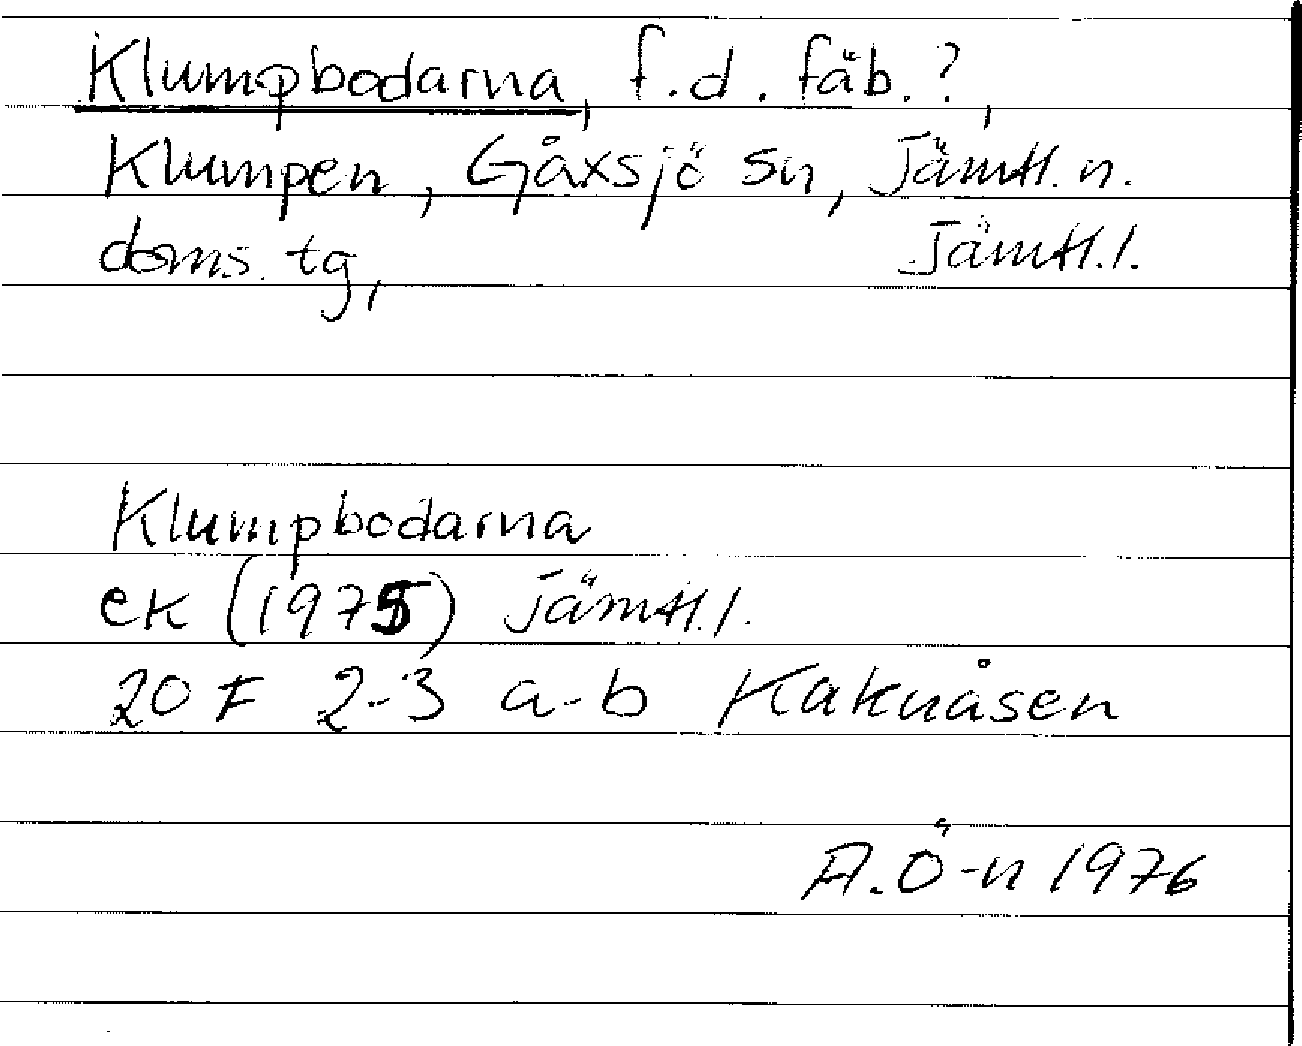 Klumpbodarna, f.d. fäb.?,
Klumpen, Gåxsjö sn, Jämtl. n.
doms. tg, Jämtl. l.
Klumpbodarna
ek (1975) Jämtl. l.
20 F 2-3 a-b Kakuåsen
A. Ö-n 1976